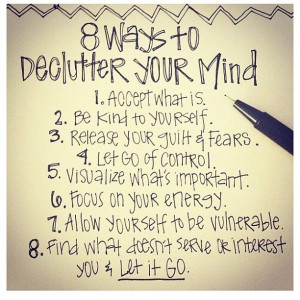 8 Ways to
Declutter Your Mind
1. Accept what is.
2. Be kind to yourself.
3. Release your guilt & fears.
4. Let go of control.
5. Visualize what's important.
6. Focus on your energy.
7. Allow yourself to be vulnerable.
8. Find what doesn't serve or interest
you & Let it go.